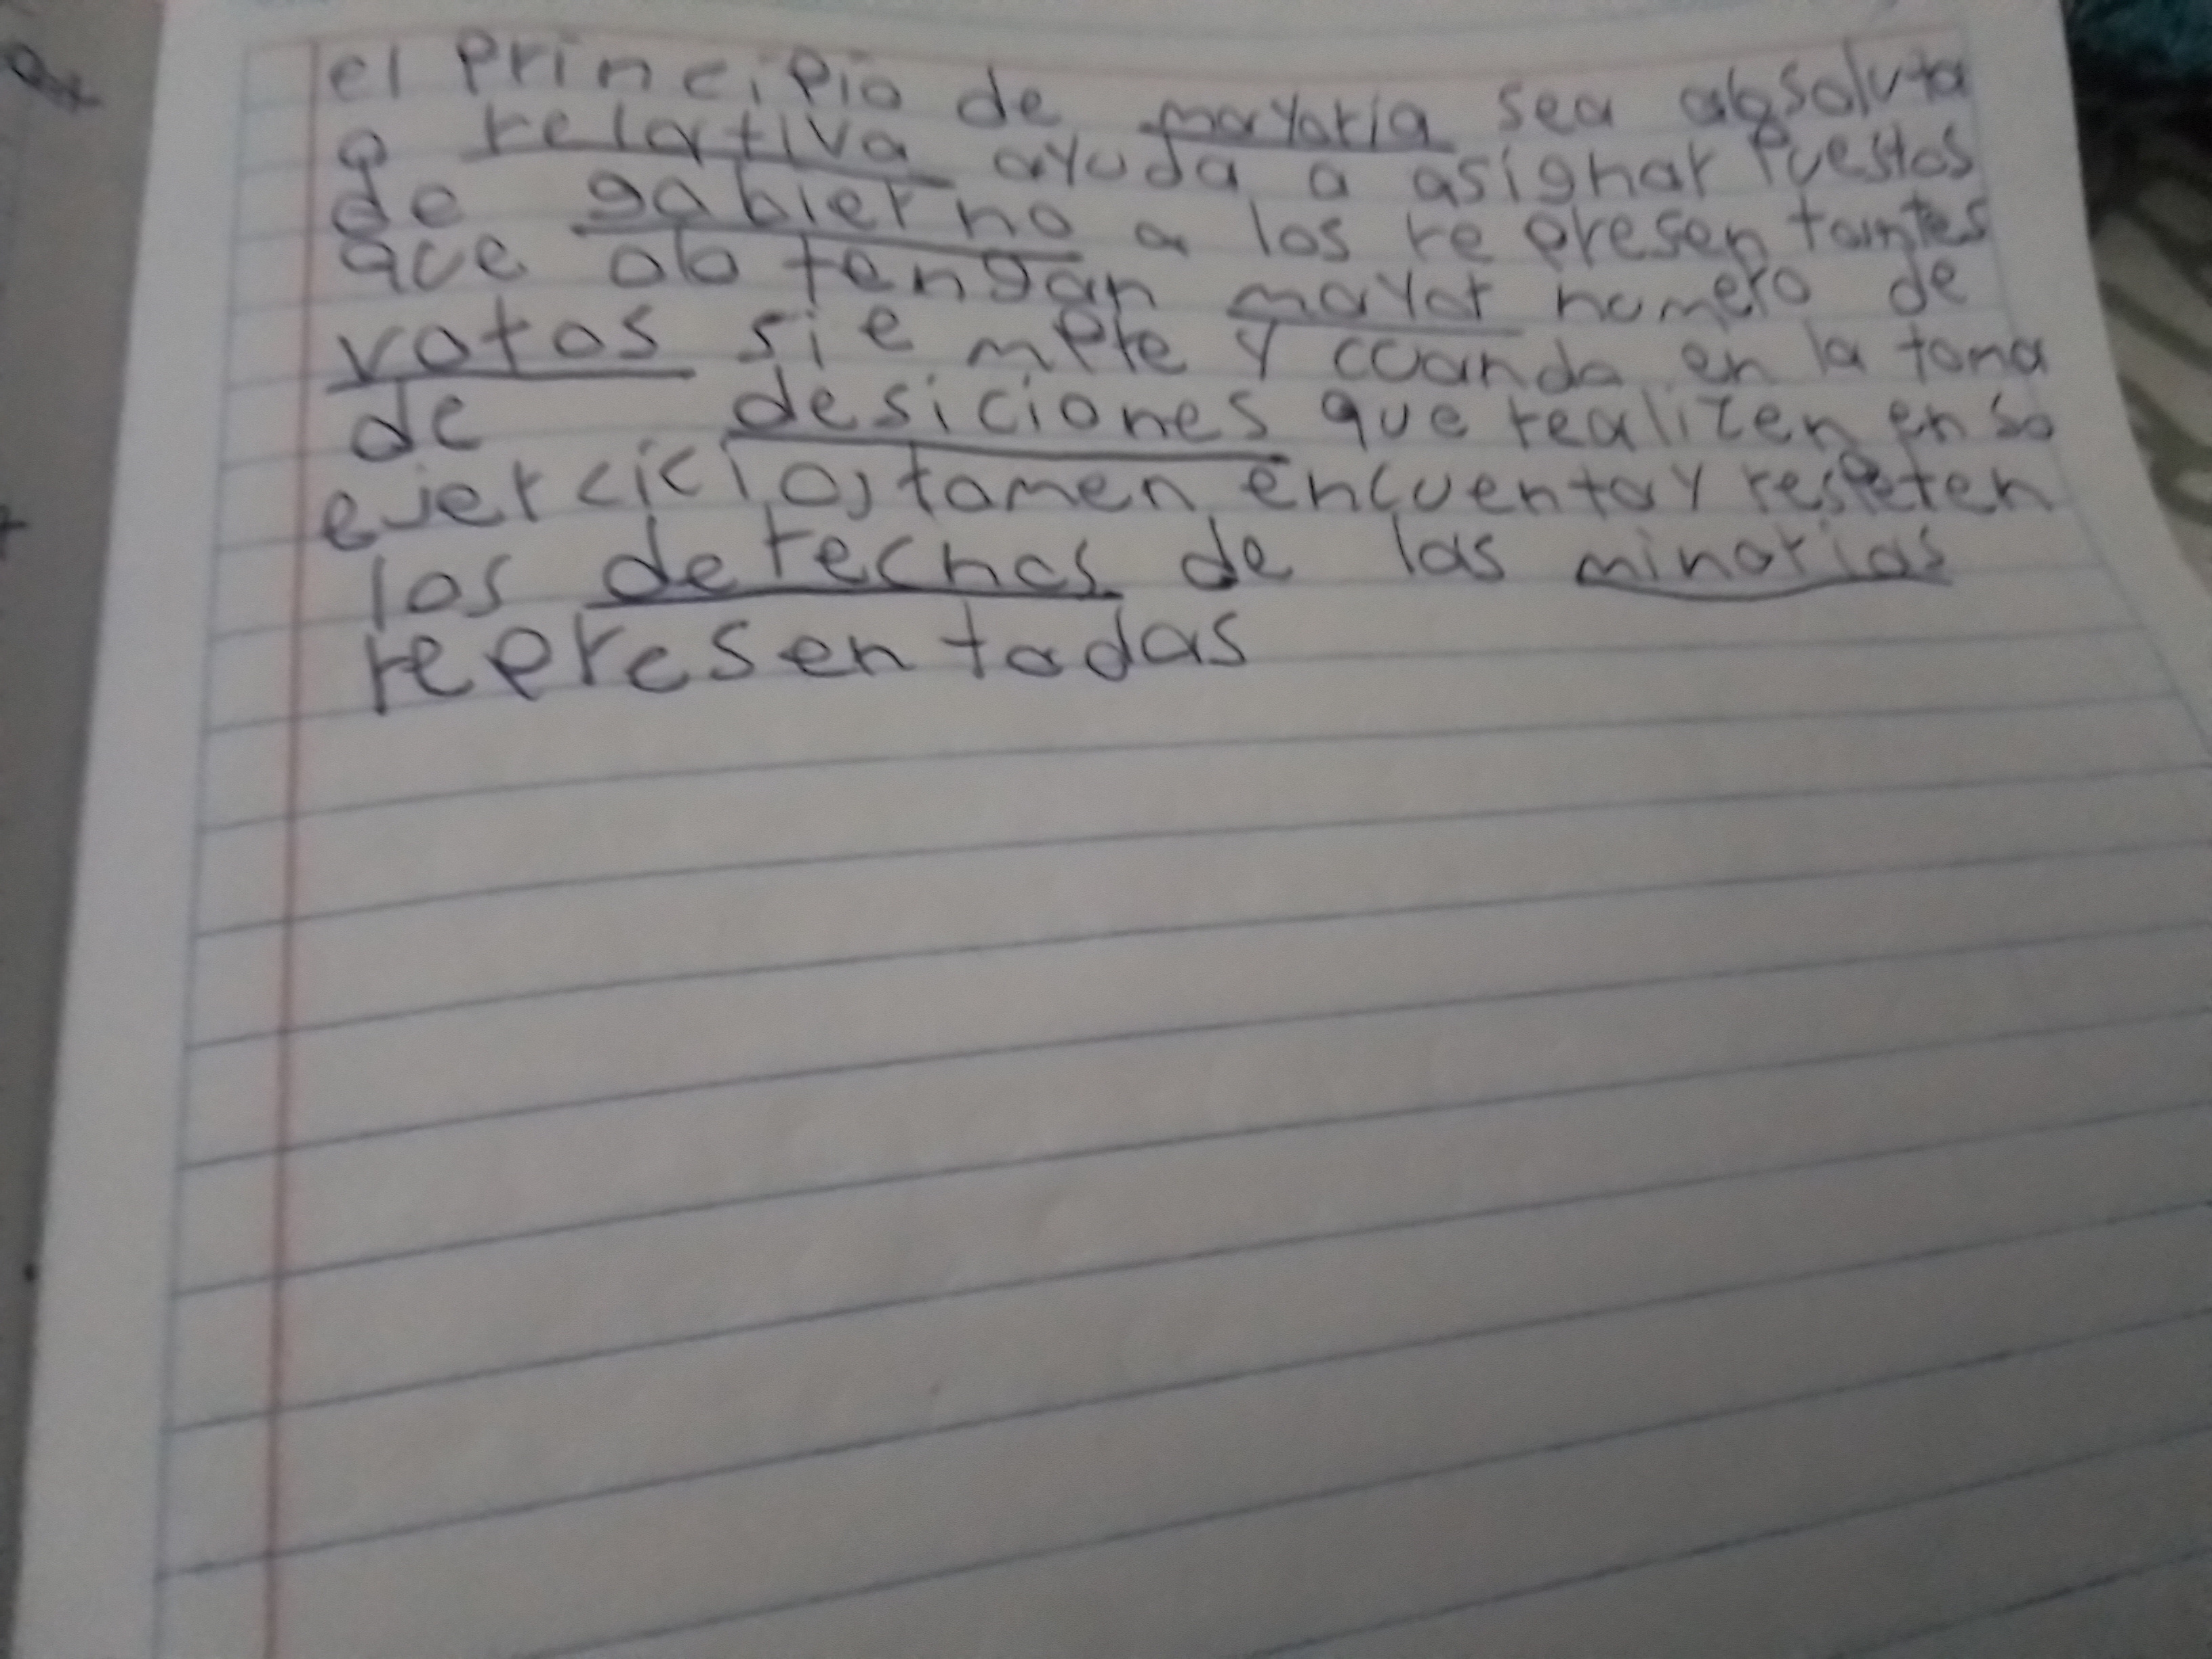 el principio de mayoria sea absoluta
o relativa ayuda a asignar puestos
de gobierno a los representantes
que obtengan mayor numero de
votos siempre y cuando en la toma
de desiciones que realizen en su
ejercicio, tomen encuenta y respeten
los derechos de las minorias
representadas